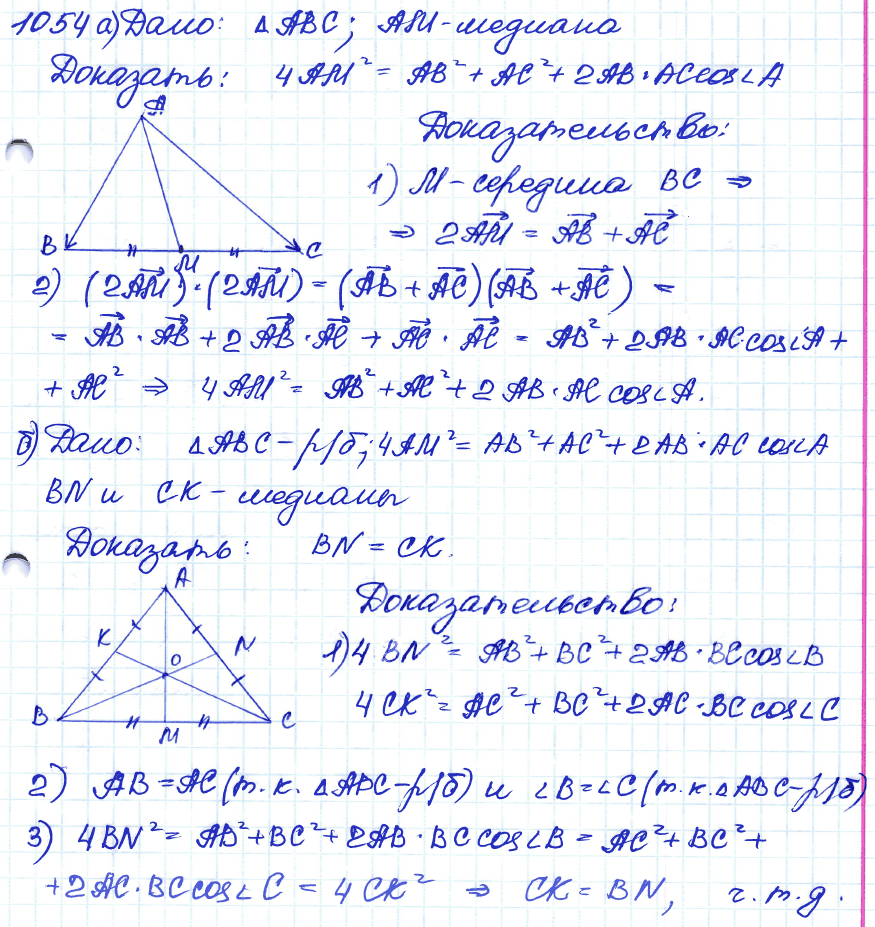 1054 а) Дано: △ABC; AM-медиана
Доказать: 4AM² = AB² + AC² + 2AB·AC cos∠A
A
Доказательство:
1) M-середина BC ⇒
⇒ 2AM⃗ = AB⃗ + AC⃗
B
M
C
2) (2AM⃗)·(2AM⃗) = (AB⃗ + AC⃗)(AB⃗ + AC⃗) =
= AB⃗·AB⃗ + 2AB⃗·AC⃗ + AC⃗·AC⃗ = AB² + 2AB·AC cos∠A +
+ AC² ⇒ 4AM² = AB² + AC² + 2AB·AC cos∠A.
б) Дано: △ABC - р/б; 4AM² = AB² + AC² + 2AB·AC cos∠A
BN и CK - медианы
Доказать: BN = CK.
A
Доказательство:
K
N
O
1) 4BN² = AB² + BC² + 2AB·BC cos∠B
4CK² = AC² + BC² + 2AC·BC cos∠C
B
M
C
2) AB = AC (т.к. △ABC - р/б) и ∠B = ∠C (т.к. △ABC - р/б)
3) 4BN² = AB² + BC² + 2AB·BC cos∠B = AC² + BC² +
+ 2AC·BC cos∠C = 4CK² ⇒ CK = BN, ч.т.д.